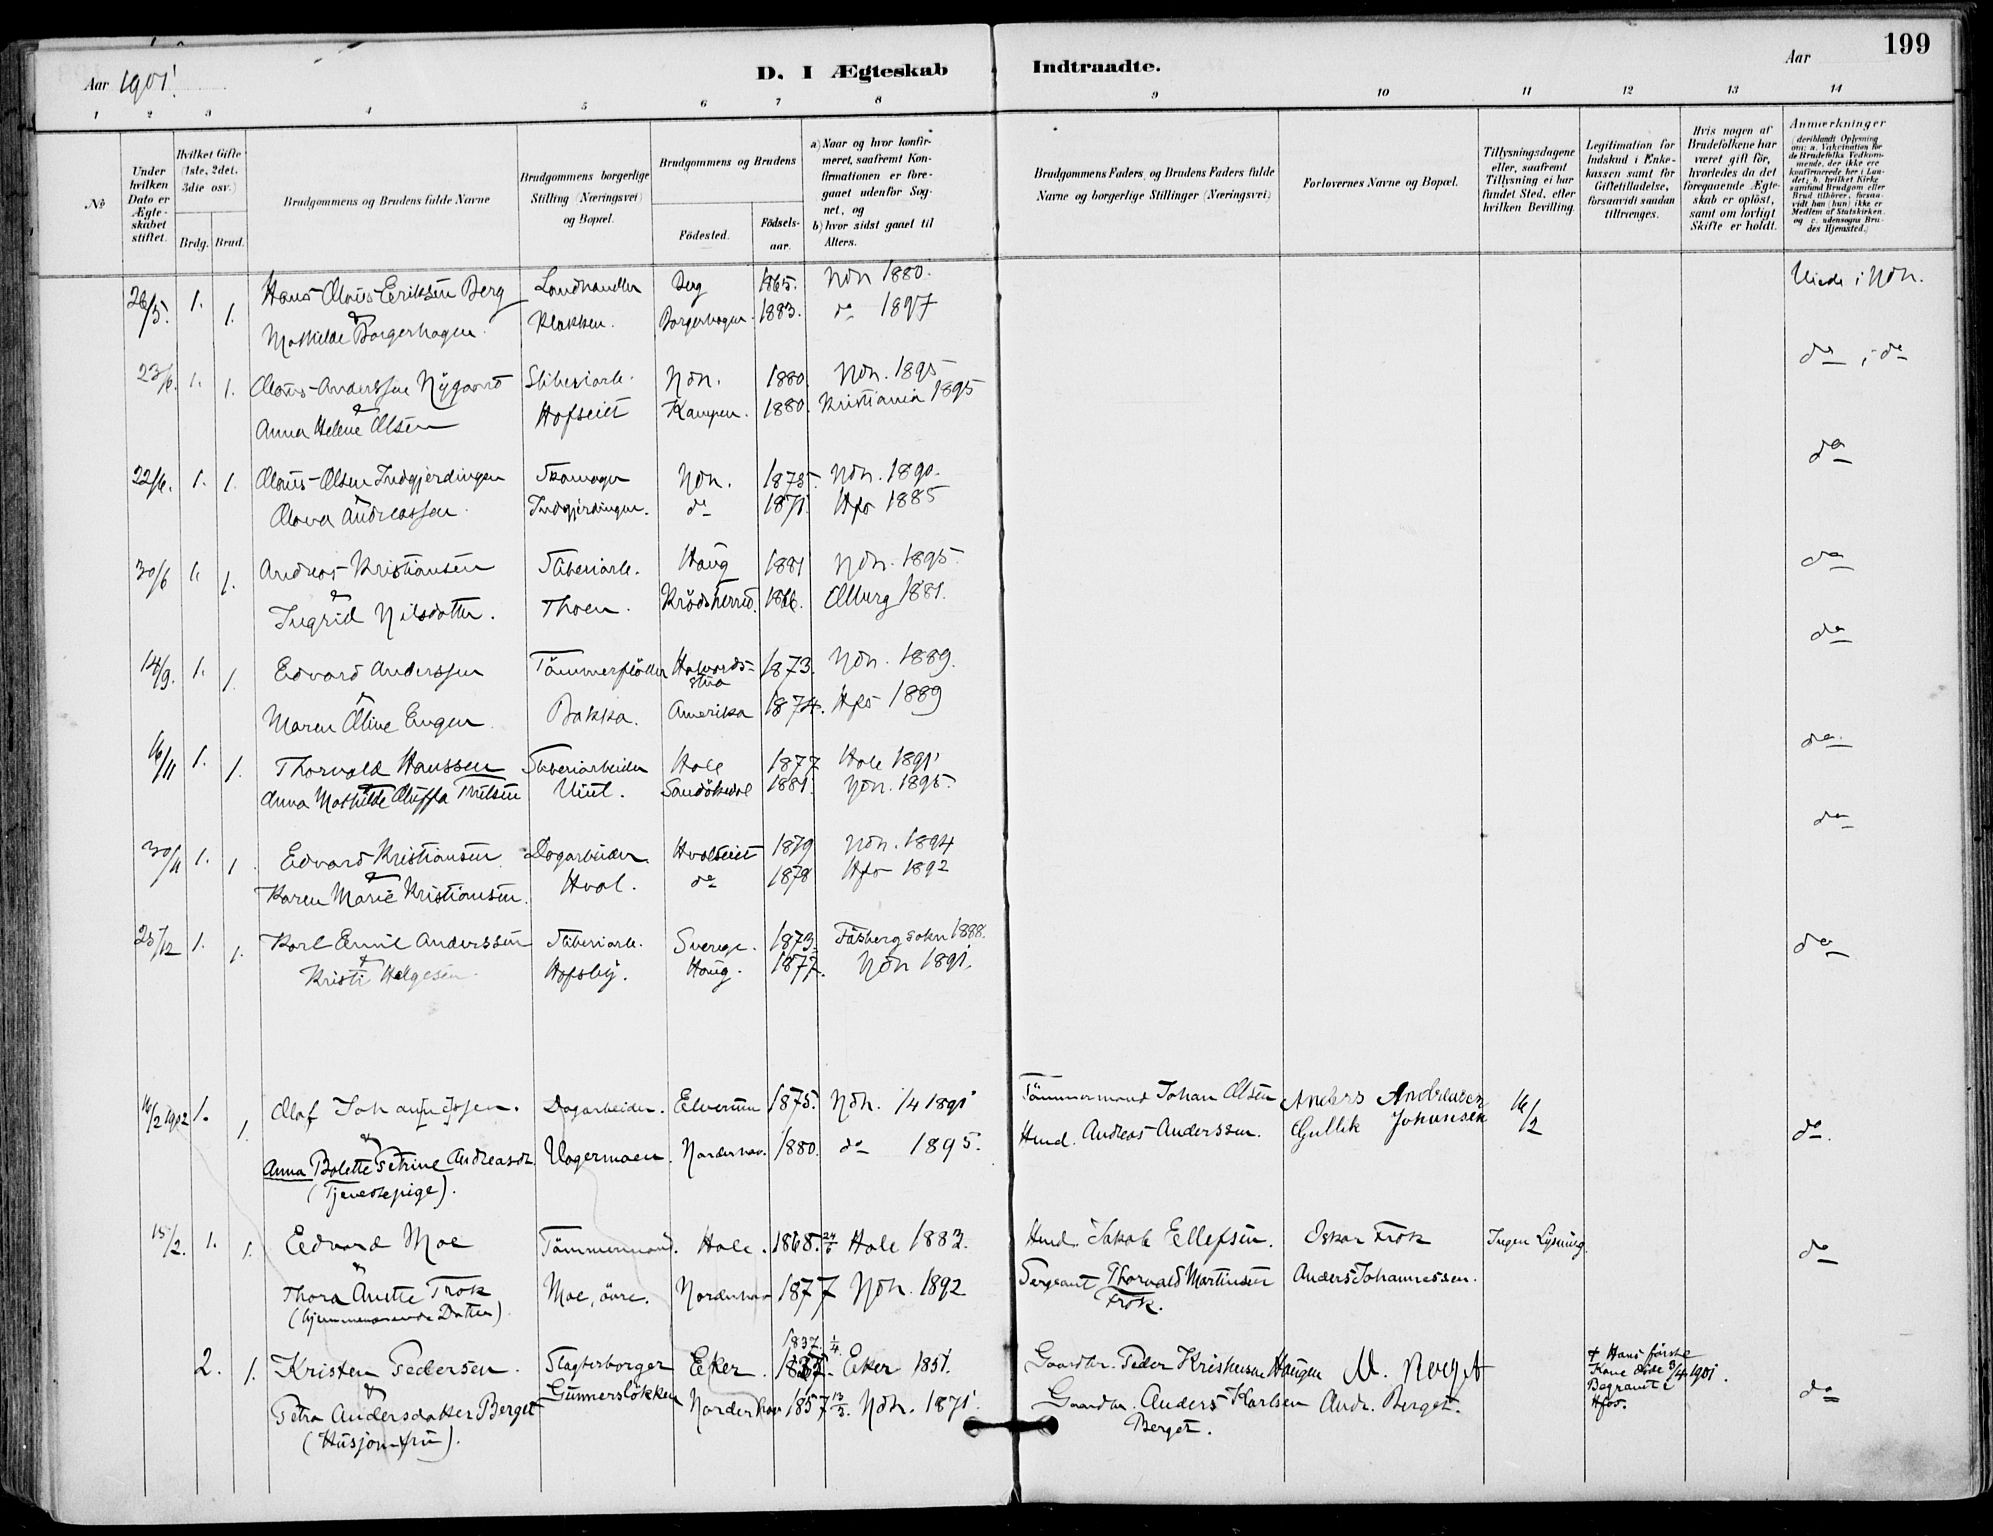 199
Aar 1901.
D. I Ægteskab Indtraadte.
Aar
1 2 3 4 5 6 7 8 9 10 11 12 13 14
No
Under hvilken Dato er Ægteskabet stiftet.
Hvilket Gifte (1ste, 2det, 3die osv.)
Brdg. Brud.
Brudgommens og Brudens fulde Navne
Brudgommens borgerlige Stilling (Næringsvei) og Bopæl.
Brudgommens og Brudens
Födested.
Födsels-aar.
a) Naar og hvor konfirmeret, saafremt Konfirmationen er foregaaet udenfor Sognet, og
b) hvor sidst gaaet til Alters.
Brudgommens Faders og Brudens Faders fulde Navne og borgerlige Stillinger (Næringsvei)
Forlovernes Navne og Bopæl.
Tillysningsdagene eller, saafremt Tillysning ei har fundet Sted, efter hvilken Bevilling.
Legitimation for Indskud i Enkekassen samt for Giftetilladelse, forsaavidt saadan tiltrænges.
Hvis nogen af Brudefolkene har været gift för, hvorledes da det foregaaende Ægteskab er oplöst, samt om lovligt Skifte er holdt.
Anmærkninger (deriblandt Oplysning om: a. Vakcination for de Brudefolks Vedkommende, der ikke ere konfirmerede her i Landet; b. hvilket Kirkesamfund Brudgom eller Brud tilhörer, forsaavidt han (hun) ikke er Medlem af Statskirken, og c. udensogns Brudes Hjemsted.)
26/5. 1. Hans Olaus Eriksen Berg Landhandler Berg 1865. Ndn 1880. Viede i Ndn.
1. & Mathilde Borgerhagen. Klækken. Borgerhagen. 1883. do 1897
23/6. 1. 1. Olaus Anderssen Nygaard Sliberiarb. Ndn. 1880. Ndn. 1895 do i do
& Anna Helene Olsen Hofseiet Kampen. 1880. Kristiania 1895
22/6. 1. 1. Olaus Olsen Indgjerdingen Skomager Ndn. 1875. Ndn. 1890. do
& Olava Andreassen. Indgjerdingen. do 1871. Hfos 1885
30/6 1. 1. Andreas Kristiansen Sliberiarb. Haug 1881 Ndn. 1895. do
& Ingrid Nilsdatter. Thoen. Krödsherred. 1866. Olberg 1881.
do
14/9. 1. 1. Edvard Anderssen Tömmerflöder Halvardsstua 1873. Ndn. 1889.
& Maren Oline Engen. Bakka. Amerika 1874. Hfos 1889
16/11 1. 1. Thorvald Hanssen Sliberiarbeider Hole 1877 Hole 1891 do
& Anna Mathilde Oluffa Trulsen Viul. Sandökedal 1881. Ndn. 1895.
do
30/11 1. 1. Edvard Kristiansen Dagarbeider. Hvalseiet 1879 Ndn. 1894
& Karen Marie Kristiansen. Hval. do 1878 Hfos 1892
25/12 1. 1. Karl Emil Anderssen Sliberiarb. Sverige. 1873. Fåsberg sokn 1888. do
& Kristi Helgesen. Hofsby. Haug. 1877. Ndn 1891.
16/2 1902 1. Olaf Johannessen. Dagarbeider. Elverum 1875. Ndn. 1/4 1891 Tömmermand Johan Olsen Anders Andersen 16/2
1. & Anna Bolette Petrine Andreasdr. Vagermoen. Norderhov. 1880. do 1895. Hmd. Andreas Anderssen. Gullik Johansen do.
(Tjenestepige).
15/2. 1. 1. Edvard Moe Tömmermand. Hole. 1868. 24/6 Hole 1883. Hmd. Jakob Ellefsen. Oskar Frok Ingen Lysning. do
& Thora Anette Frok Moe, övre. Norderhov 1877 Ndn. 1892 Sergeant Thorvald Martinsen Frok. Anders Johannessen.
(hjemmeværende Datter).
2. 1. Kristen Pedersen. Slagterborger Eker. 1837. 1/4. Eker 1851. Gaardbr. Peder Kristensen Haugen M. Norget + Hans förste Kone döde 3/4 1901. Begravet i Hfos.
& Petra Andersdatter Berget Gunnerslökken Norderhov 1857 13/3. Ndn. 1871. Gaardbr. Anders Karlsen Berget. Andr. Berget. do
(Husjomfru).